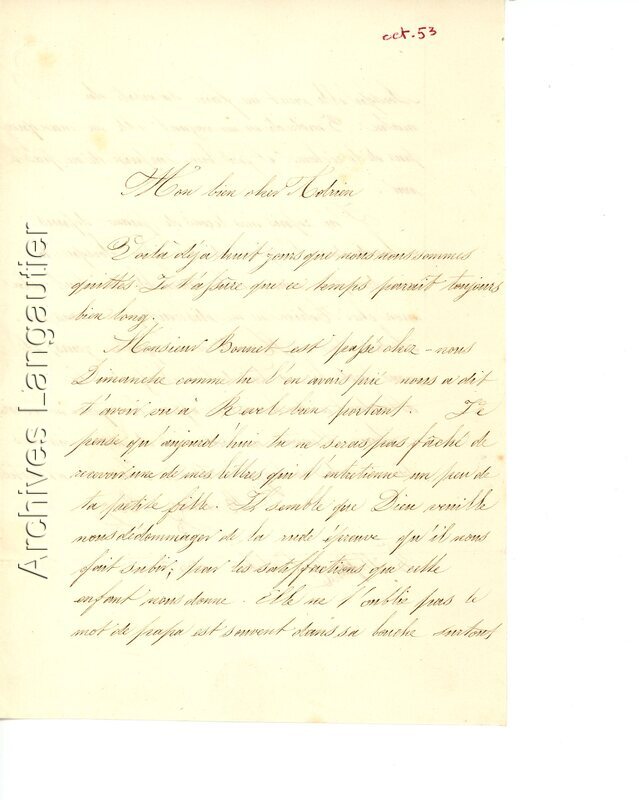 oct. 53
Mon bien cher Adrien
Voilà déja huit jours que nous nous sommes
quittés. Je t'assure que ce temps parrait toujours
bien long.
Monsieur Bonnet est passé chez-nous
Dimanche comme tu l'en avais prié nous a dit
t'avoir vu à Revel bien portant. Je
pense qu'aujourd'hui tu ne serais pas faché de
recevoir une de mes lettres qui t'entretienne un peu de
ta petite fille. Il semble que Dieu veuille
nous dédommager de la rude épreuve qu'il nous
fait subir; par les satisffactions que cette
enfant nous donne. Elle ne t'oublie pas le
mot de papa est souvent dans sa bouche surtout
Archives Langautier